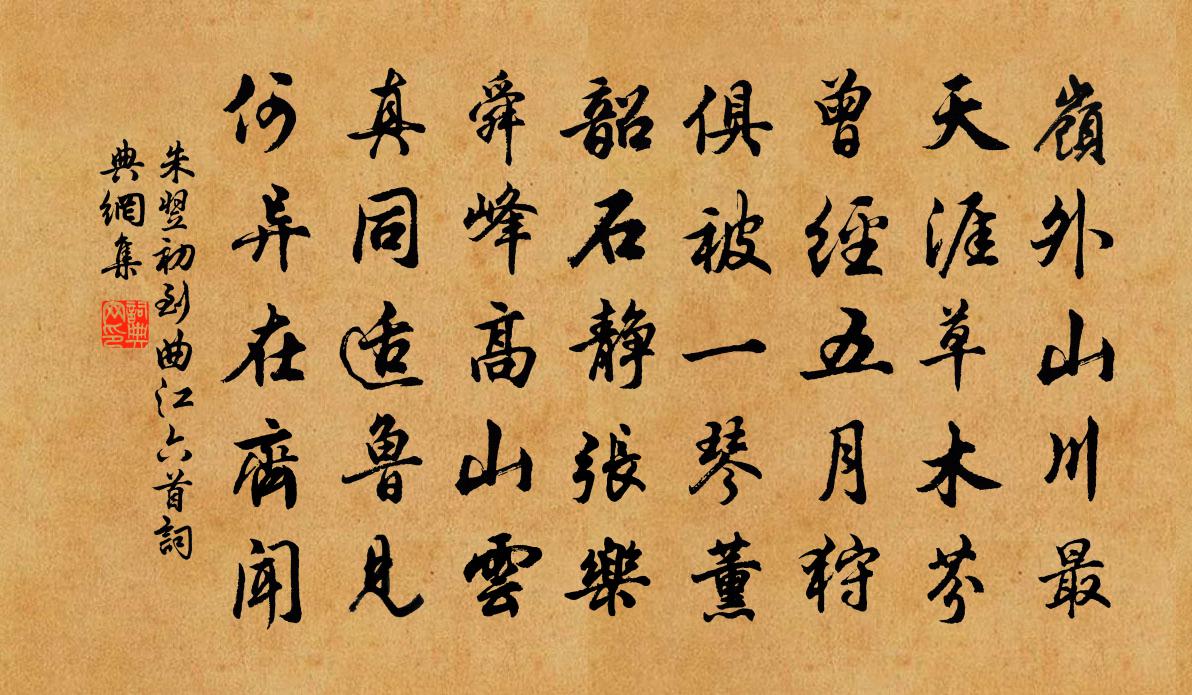 嶺外山川最
天涯草木芬
曾經五月狩
俱被一琴薰
韶石静張樂
舜峰高山雲
真同适魯見
何异在齊聞
朱翌初到曲江六首詞
典網集
詞典
网印